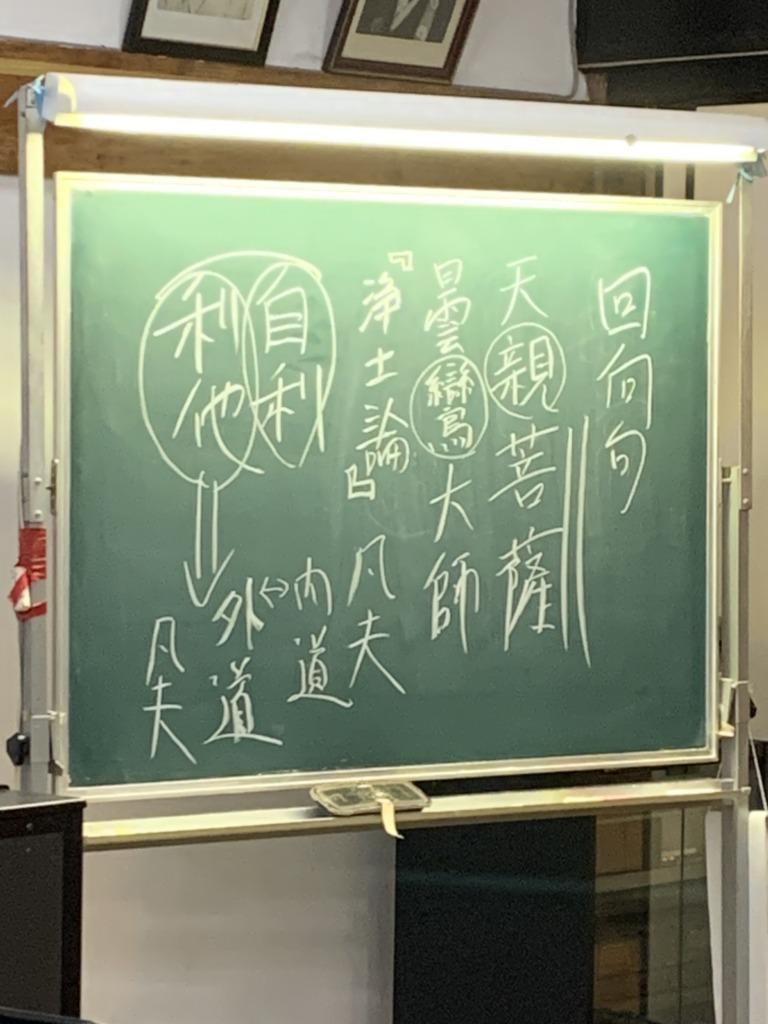 回向句
天親菩薩
曇鸞大師
『浄土論』凡夫
自利
利他
内道
↔
外道
凡夫